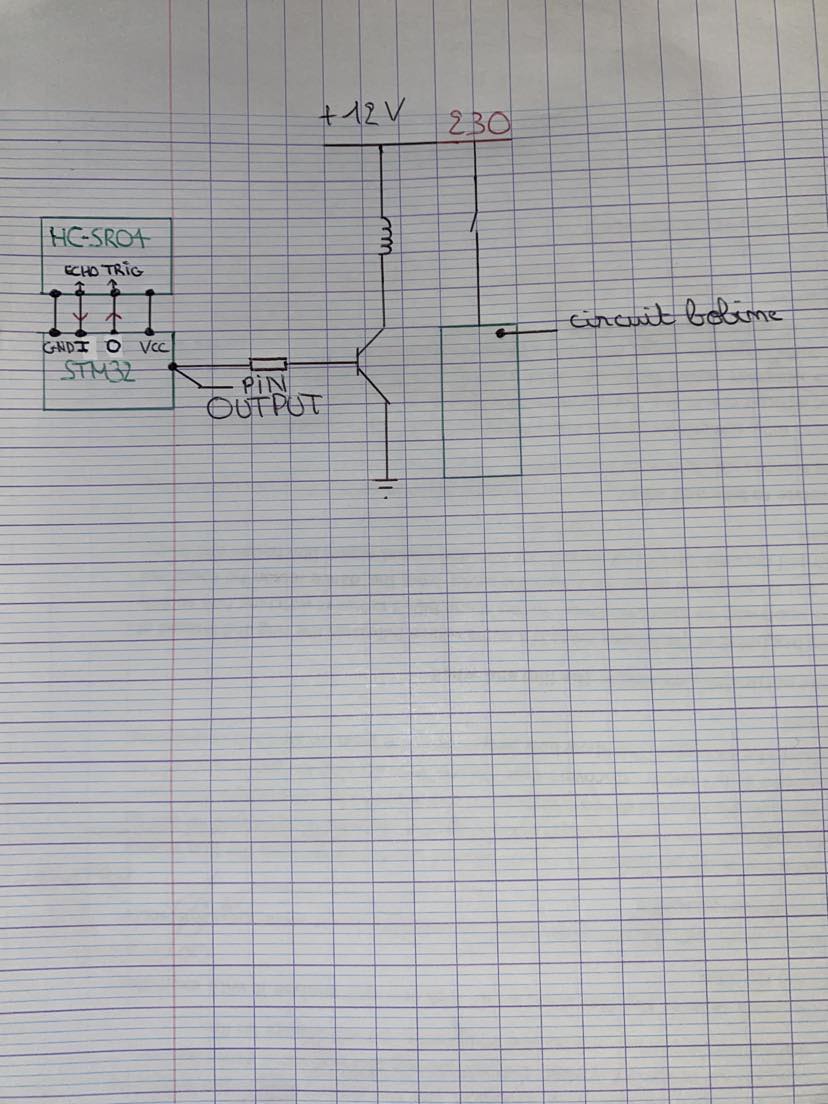 +12V 230
HC-SR04
ECHO TRIG
GND I O VCC
STM32
PIN
OUTPUT
circuit bobine